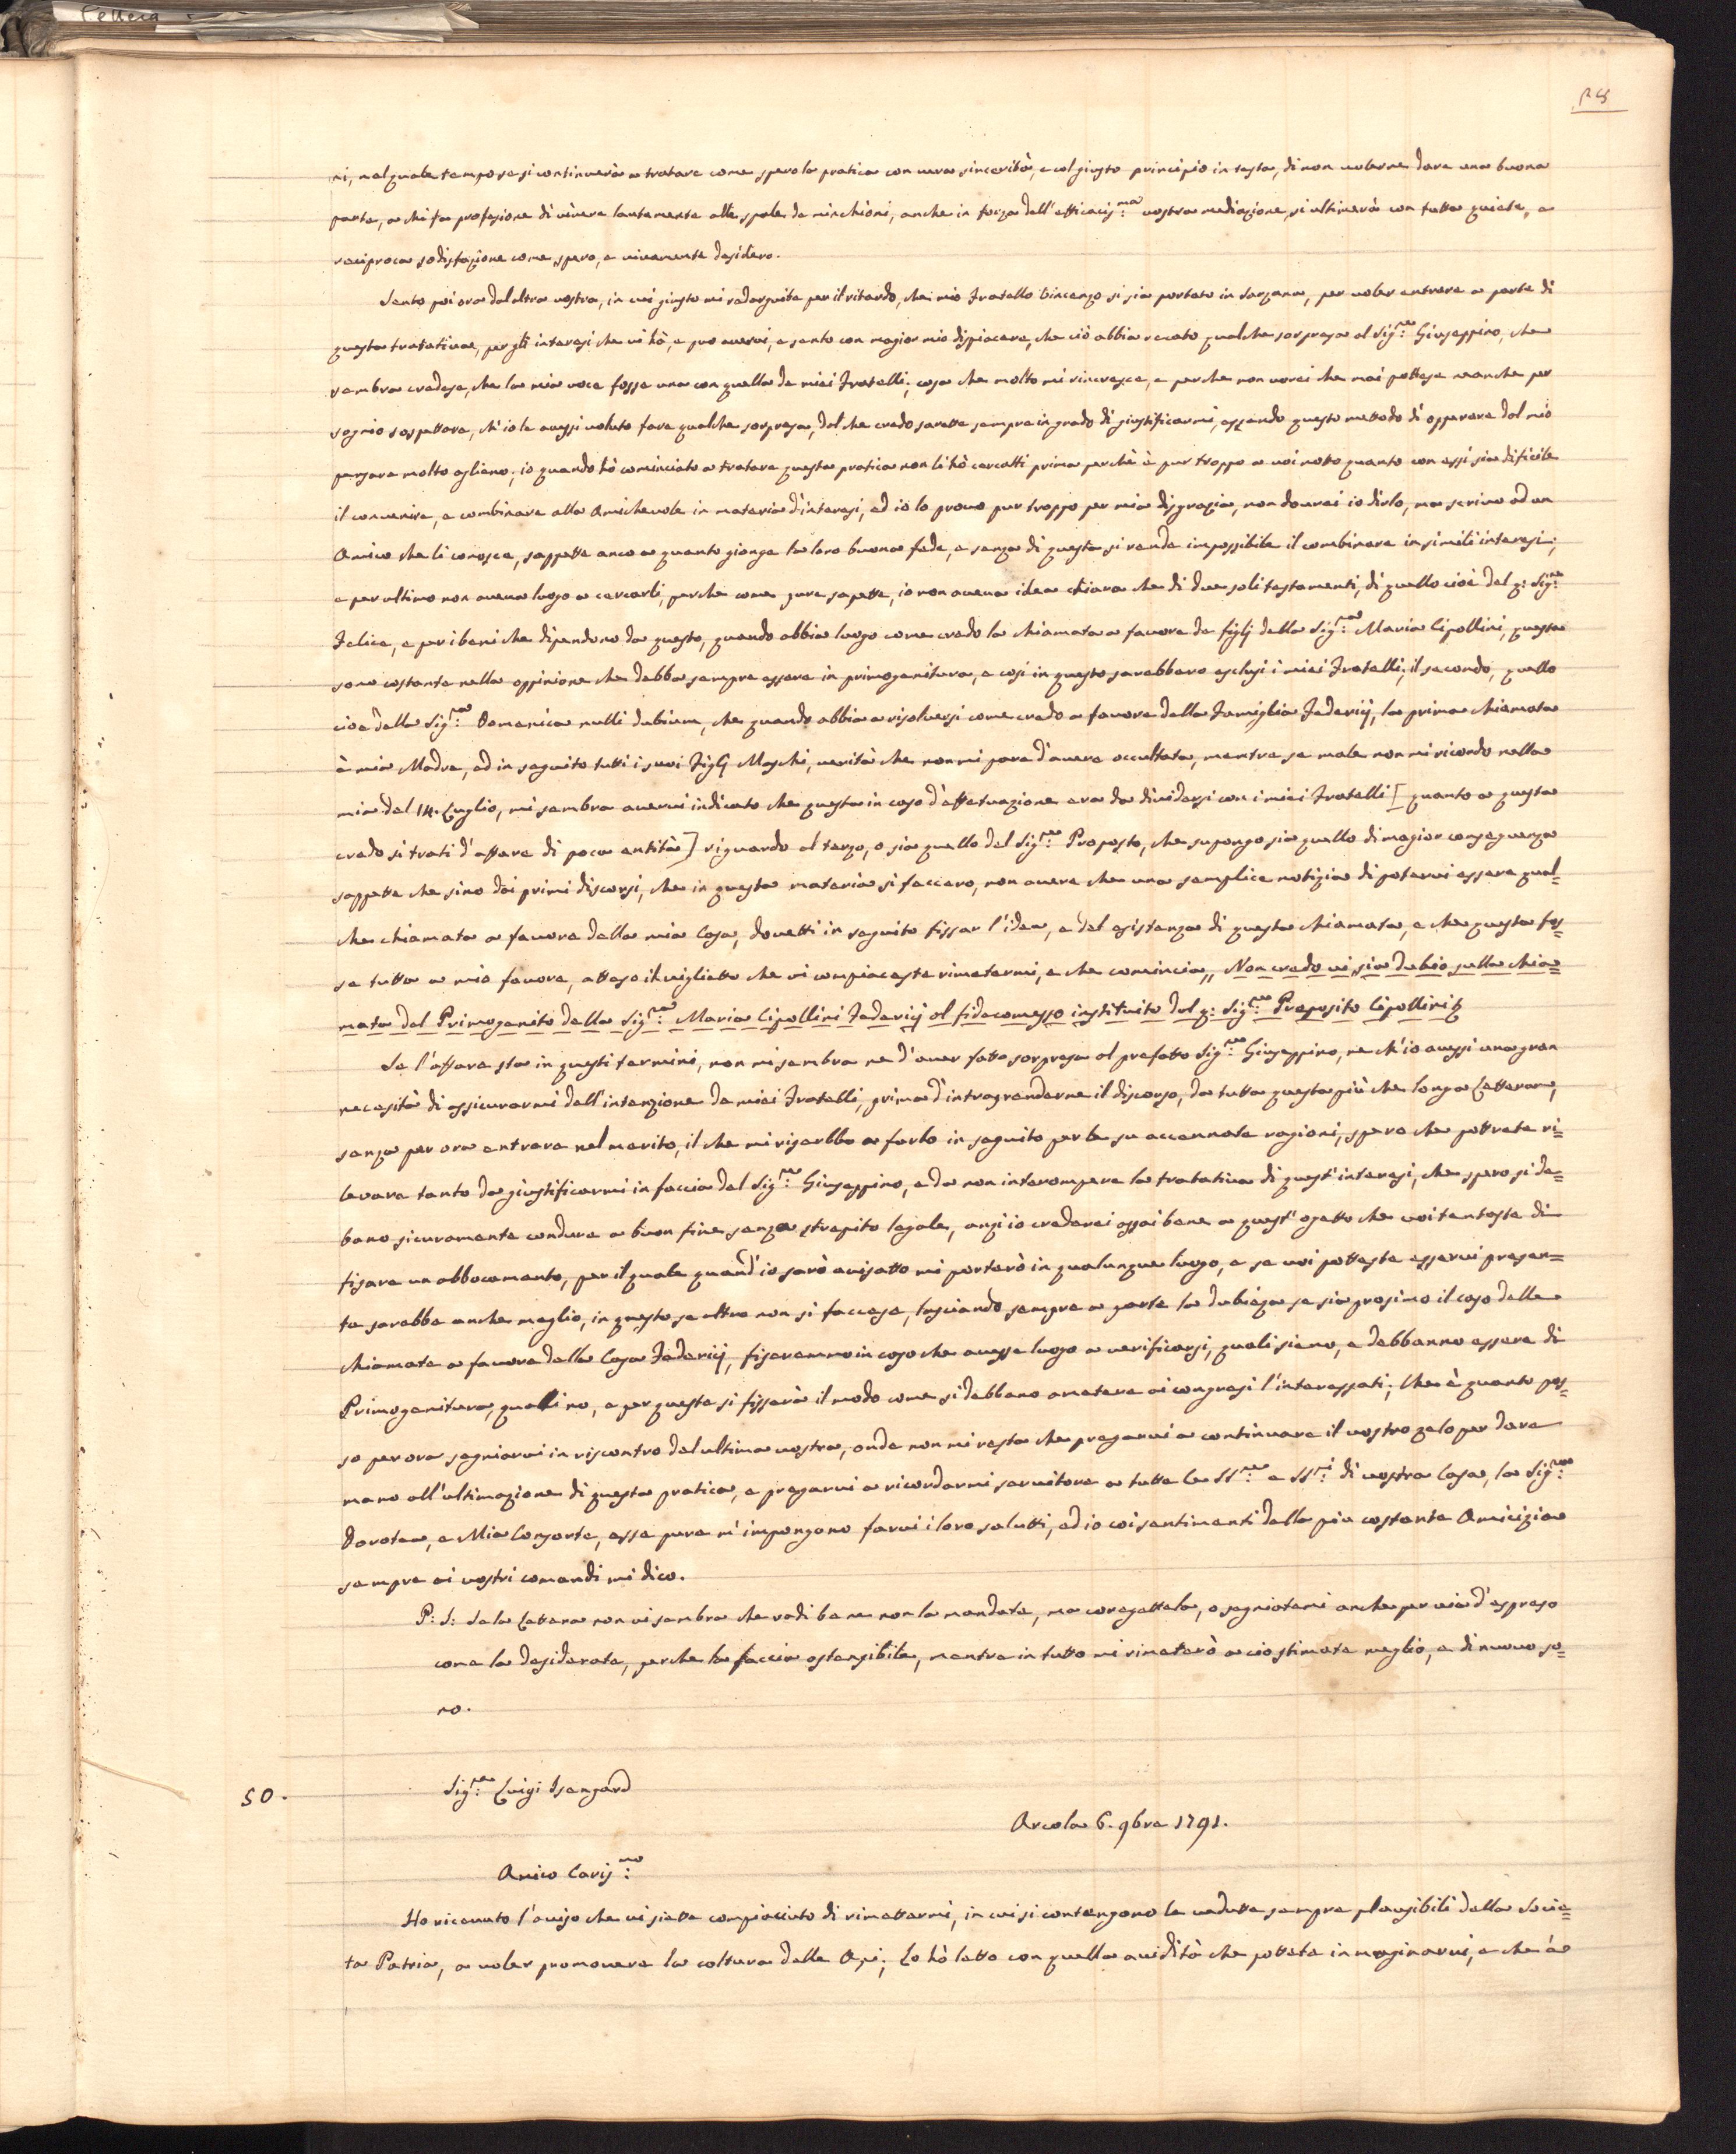 Lettera
ni, nel quale tempo se si continuerà a tratare come spero la pratica con vera sincerità, e col giusto principio in testa, di non volerne dare una buona
parte, a chi fa profesione di vivere lautamente alle spale de minchioni, anche in forza dell'efficacis:ma vostra mediazione, si ultimerà con tutta quiete, e
reciproca sodisfazione come spero, e vivamente desidero.
Sento poi ora dal altra vostra, in cui giusto mi redarguite per il ritardo, che mio Fratello Vincenzo si sia portato in Sarzana, per voler entrare a parte di
questa tratativa, per gli interesi che vi hà, e puo avervi, e sento con magior mio dispiacere, che ciò abbia recato qualche sorpresa al Sig:re Giuseppino, che
sembra credese, che la mia voce fosse una con quella de miei Fratelli; cosa che molto mi rincresce, e perche non vorei che mai pottese neanche per
sognio sospettare, ch'io le avessi voluto fare qualche sorpresa, dal che credo sarette sempre in grado di giustificarmi, essendo questo mettodo di opperare dal mio
pensare molto aglieno; io quando hò cominciato a tratare questa pratica non li hò cercatti prima perchè è pur troppo a voi notto quanto con essi sia dificile
il convenire, e combinare alla amichevole in materia d'interesi, ed io lo provo pur troppo per mia disgrazia, non dovrei io dirlo, ma scrivo ad un
Amico che li conosce, sappette anco a quanto gionga la loro buona fede, e senza di questa si rende impossibile il combinare in simili interesi;
e per ultimo non aveva luogo a cercarli, perche come pure sapette, io non aveva idea chiara che di due soli testamenti, di quello cioè del q: Sig:re
Felice, e per i beni che dipendono da questo, quando abbia luogo come credo la chiamata a favore de figlj della Sig:ra Maria Cipollini, questa
sono costante nella oppinione che debba sempre essere in primogenitura, e così in questo sarebbero esclusi i miei Fratelli; il secondo, quello
cioè della Sig:ra Domenica nulli dubium, che quando abbia a risolversi come credo a favore della Famiglia Federicj, la prima chiamata
è mia Madre, ed in seguito tutti i suoi Figlj Maschi, verità che non mi pare d'avere occultata, mentre se male non mi ricordo nella
mia del 14. Luglio, mi sembra avervi indicato che questa in caso d'effetuazione era da dividersi con i miei Fratelli [quanto a questa
credo si trati d'affare di poca entità] riguardo al terzo, o sia quello del Sig:re Proposto, che supongo sia quello di magior conseguenza
sappette che sino dai primi discorsi, che in questa materia si faccero, non avere che una semplice notizia di potervi essere qual=
che chiamata a favore della mia Casa, dovetti in seguito fissar l'idea, e del esistenza di questa chiamata, e che questa fos=
se tutta a mio favore, atteso il viglietto che vi compiaceste rimetermi, e che comincia,, Non credo vi sia dubio sulla chia=
mata del Primogenito della Sig:ra Maria Cipollini Federicj al fidecomesso instituito dal q: Sig:re Preposito Cipollini &
Se l'affare sta in questi termini, non mi sembra ne d'aver fatto sorpresa al prefatto Sig:re Giuseppino, ne ch'io avessi una gran
necesità di assicurarmi dell'intenzione de miei Fratelli, prima d'intragrenderne il discorso, da tutta questa più che longa Lettera,
senza per ora entrare nel merito, il che mi riserbbo a farlo in seguito per le su accennate ragioni, spero che pottrete ri=
levare tanto da giustificarmi in faccia del Sig:re Giuseppino, e da non interompere la tratativa di quest'interesi, che spero si de=
bano sicuramente condure a buon fine senza strepito legale, anzi io crederei assai bene a quest'ogetto che voi tentaste di
fisare un abbocamento, per il quale quand'io sarò avisatto mi porterò in qualunque luogo, e se voi potteste esservi presen=
te sarebbe anche meglio, in questo se altro non si faccese, lasciando sempre a parte la dubieza se sia prosimo il caso delle
chiamate a favore della Casa Federicj, fiseremmo in caso che avesse luogo a verificarsi, quali siano, e debbanno essere di
Primogenitura, quali no, e per queste si fisserà il modo come si debbano ametere ai congresi l'interessati; che è quanto pos=
so per ora segniarvi in riscontro dal ultima vostra, onde non mi resta che pregarvi a continuare il vostro zelo per dare
mano all'ultimazione di questa pratica, e pregarvi a ricordarmi servitore a tutte le SS:re e SS:ri di vostra Casa, la Sig:ra
Dorotea, e Mia Consorte, esse pure m'impongono farvi i loro salutti, ed io coi sentimenti della più costante Amicizia
sempre ai vostri comandi mi dico.
P: S: Se la Lettera non vi sembra che vadi bene non la mandate, ma coregettela, o segniatemi anche per via d'espreso
come la desiderate, perche la faccia ostensibile, mentre in tutto mi rimeterò a cio stimate meglio, e di nuovo so=
no.
50.
Sig:re Luigi Isengard
Arcola 6. 9bre 1791.
Amico Caris:mo
Ho ricevuto l'aviso che vi siette compiaciuto di rimettermi, in cui si contengono le vedute sempre plausibili della Socie=
ta Patria, a voler promovere la coltura delle Api; Lo hò letto con quella avidità che pottete inmaginarvi, e che è